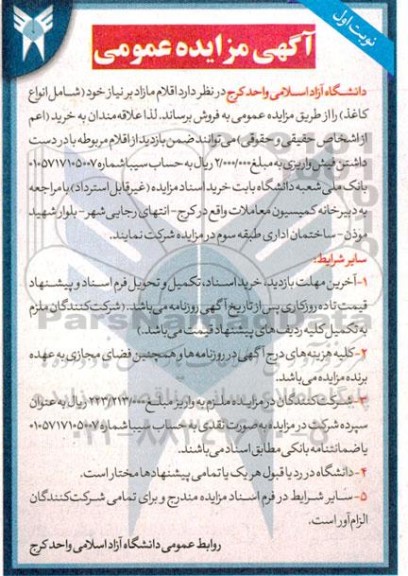 نوبت اول
آگهی مزایده عمومی
دانشگاه آزاد اسلامی واحد کرج در نظر دارد اقلام مازاد بر نیاز خود (شامل انواع
کاغذ) را از طریق مزایده عمومی به فروش برساند. لذا علاقه‌مندان به خرید (اعم
از اشخاص حقیقی و حقوقی) می‌توانند ضمن بازدید از اقلام مربوطه با در دست
داشتن فیش واریزی به مبلغ ۲/۰۰۰/۰۰۰ ریال به حساب سیبا شماره ۰۱۰۵۷۱۷۱۰۵۰۰۷
بانک ملی شعبه دانشگاه بابت خرید اسناد مزایده (غیرقابل استرداد) با مراجعه
به دبیرخانه کمیسیون معاملات واقع در کرج-انتهای رجایی شهر-بلوار شهید
موذن-ساختمان اداری طبقه سوم در مزایده شرکت نمایند.
سایر شرایط:
۱-آخرین مهلت بازدید، خرید اسناد، تکمیل و تحویل فرم اسناد و پیشنهاد
قیمت تا ده روز کاری پس از تاریخ آگهی روزنامه می‌باشد. (شرکت‌کنندگان ملزم
به تکمیل کلیه ردیف‌های پیشنهاد قیمت می‌باشد.)
۲-کلیه هزینه‌های درج آگهی در روزنامه‌ها و همچنین فضای مجازی به عهده
برنده مزایده می‌باشد.
۳-شرکت‌کنندگان در مزایده ملزم به واریز مبلغ ۲۴۳/۲۱۳/۰۰۰ ریال به عنوان
سپرده شرکت در مزایده به صورت نقدی به حساب سیبا شماره ۰۱۰۵۷۱۷۱۰۵۰۰۷
یا ضمانتنامه بانکی مطابق اسناد می‌باشند.
۴-دانشگاه در رد یا قبول هر یک یا تمامی پیشنهادها مختار است.
۵-سایر شرایط در فرم اسناد مزایده مندرج و برای تمامی شرکت‌کنندگان
الزام‌آور است.
روابط عمومی دانشگاه آزاد اسلامی واحد کرج